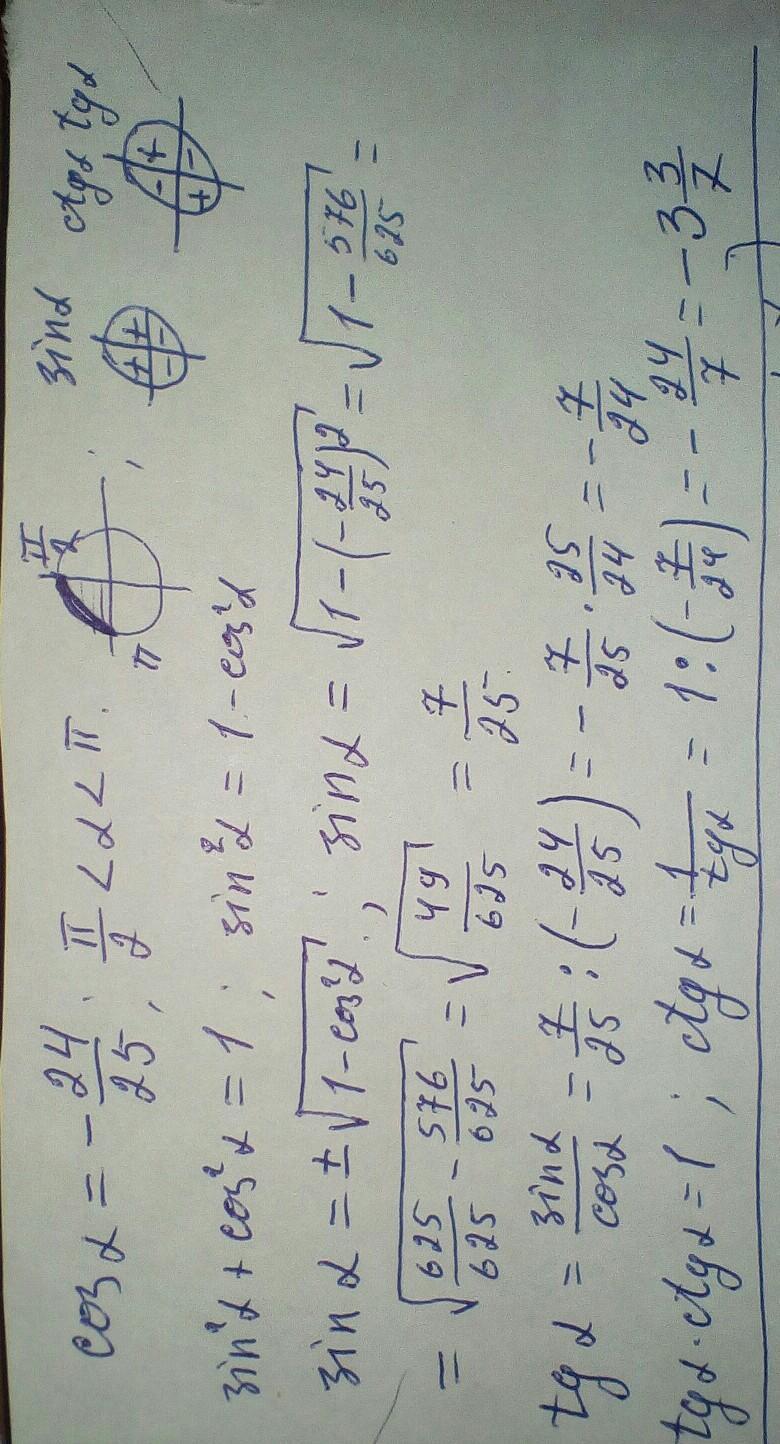 cos α = -24/25; π/2 < α < π. π π/2 ; sin α ctg α tg α
+ + - - - + + -
sin²α + cos²α = 1; sin²α = 1 - cos²α
sin α = ±√(1-cos²α); sin α = √(1-(-24/25)²) = √(1 - 576/625) =
= √(625/625 - 576/625) = √(49/625) = 7/25.
tg α = sin α/cos α = 7/25 : (-24/25) = -7/25 · 25/24 = -7/24
tg α · ctg α = 1; ctg α = 1/tg α = 1 : (-7/24) = -24/7 = -3 3/7